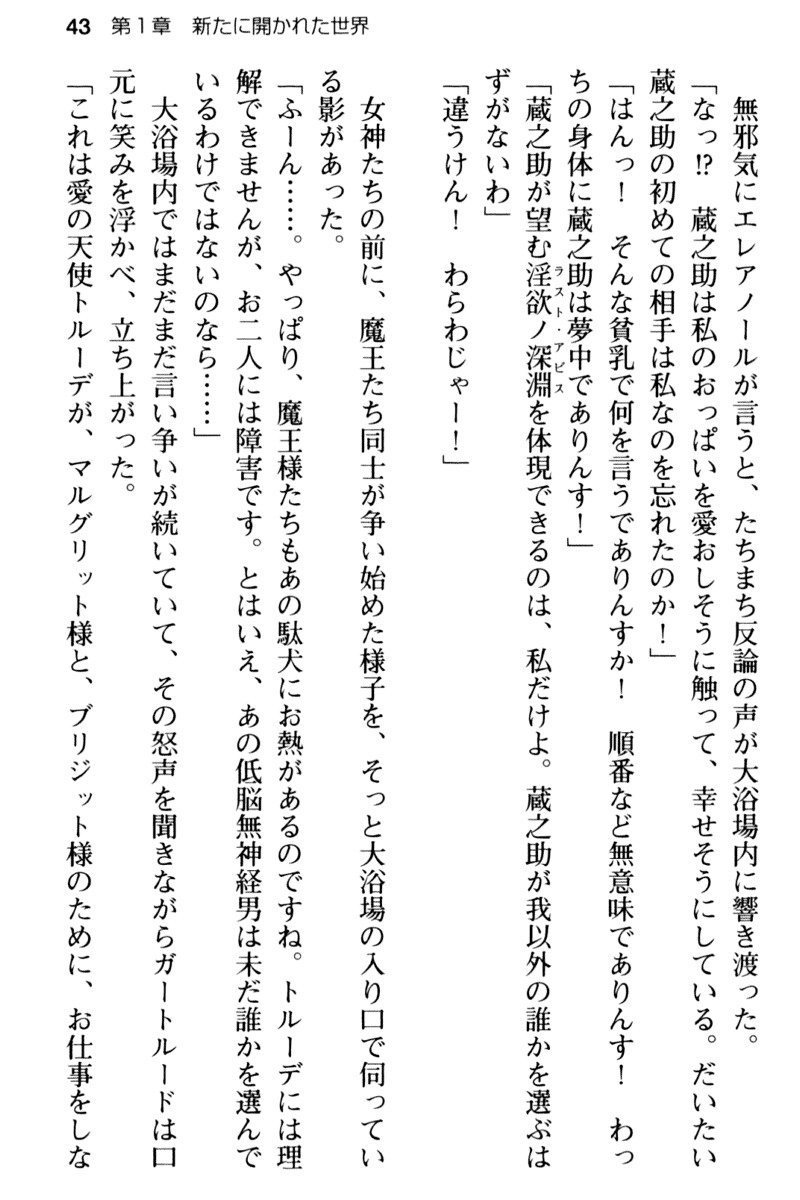 43 第1章 新たに開かれた世界
無邪気にエレアノールが言うと、たちまち反論の声が大浴場内に響き渡った。
「なっ!? 蔵之助は私のおっぱいを愛おしそうに触って、幸せそうにしている。だいたい
蔵之助の初めての相手は私なのを忘れたのか!」
「はんっ! そんな貧乳で何を言うでありんすか! 順番など無意味でありんす! わっ
ちの身体に蔵之助は夢中でありんす!」
「蔵之助が望む淫欲ノ深淵ラスト・アビスを体現できるのは、私だけよ。蔵之助が我以外の誰かを選ぶは
ずがないわ」
「違うけん! わらわじゃー!」
女神たちの前に、魔王たち同士が争い始めた様子を、そっと大浴場の入り口で伺ってい
る影があった。
「ふーん……。やっぱり、魔王様たちもあの駄犬にお熱があるのですね。トルーデには理
解できませんが、お二人には障害です。とはいえ、あの低脳無神経男は未だ誰かを選んで
いるわけではないのなら……」
大浴場内ではまだまだ言い争いが続いていて、その怒声を聞きながらガートルードは口
元に笑みを浮かべ、立ち上がった。
「これは愛の天使トルーデが、マルグリット様と、ブリジット様のために、お仕事をしな